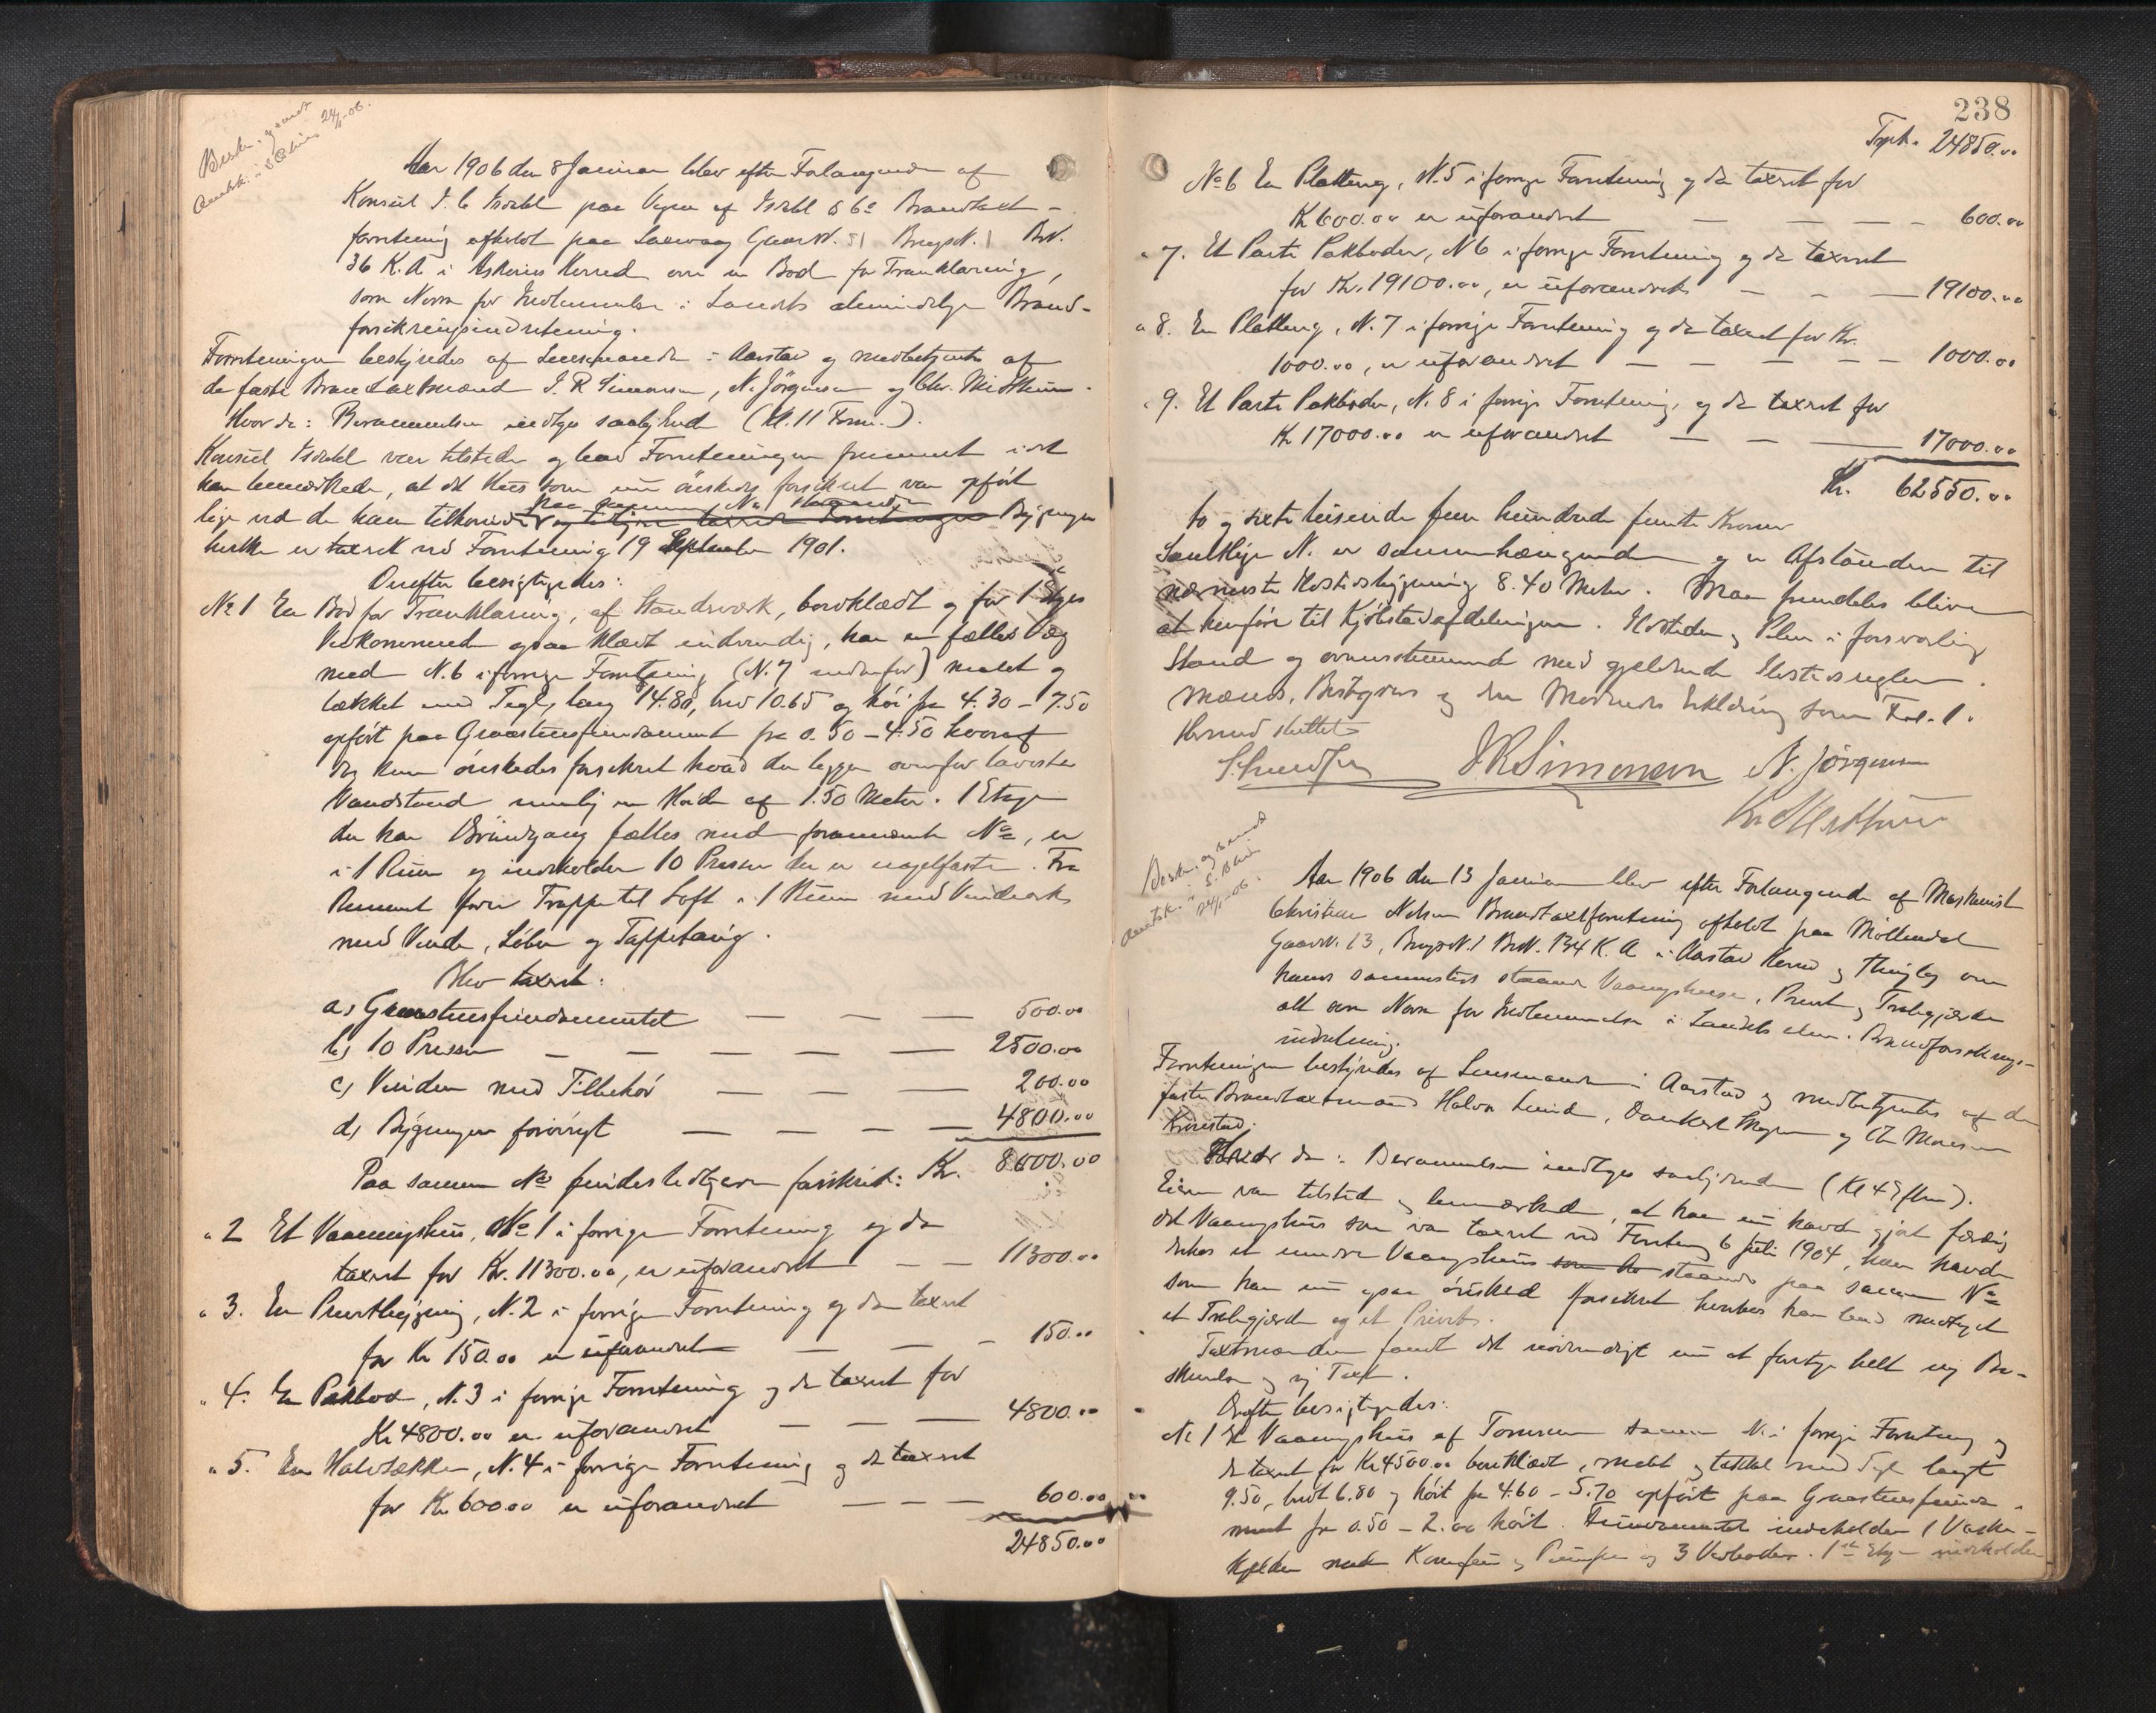 Beskr. og sendt
Amtsk. i S. B. hus 24/1-06.
Aar 1906 den 8 Januar blev efter Forlangende af
Konsul I. C. Isdahl paa Vegne af Isdahl & Co Brandtaxt-
forretning afholdt paa Laxevaag Gaards N. 51 Brugs N. 1 Br.N.
36 K. A i Askøens Herred over en Bod for Tranklaring,
som Norm for Indlemmelse i Landets almindelige Brand-
forsikringsindretning.
Forretningen bestyredes af Lensmanden i Aarstad og medbetjentes af
de faste Brandtaxtmænd J. R. Simonsen, N. Jörgensen og Chr. Midtthun.
Hvorda: Berammelsen indtoges saalydende (Kl. 11 Form.).
Konsul Isdahl var tilstede og bad Forretningen fremmet idet
han bemærkede, at det Hus som nu önskedes forsikret var opfört
paa samme No staaende
lige ved de ham tilhörende Bygninger
hvilke er taxeret ved Forretning 19 September 1901.
Derefter besigtigedes:
No 1 En Bod for Tranklaring, af Standværk, bordklædt og for 1 Etages
Vedkommende ogsaa klædt indvendig, har en fælles Væg
med N. 6 i forrige Forretning (N. 7 nedenfor) malet og
tækket med Tegl, lang 14.80, bred 10.65 og höi fra 4.30 - 7.50
opfört paa Graastensfundament fra 0.50 - 4.50 hvoraf
dog kun önskedes forsikret hvad der ligger ovenfor laveste
Vandstand nemlig en Höide af 1.50 Meter. 1 Etage
der har Opgang fælles med fornævnte No, er
i 1 Rum og indeholder 10 Presser der er nagelfaste. Fra
Rummet fører Trappe til Loft i 1 Rum med Vindværk
med Vinde, Löber og Tappetaug.
Blev taxeret:
a) Graastensfundamentet — — — 500.00
b) 10 Presser — — — — — 2500.00
c) Vinden med Tilbehör — — — 200.00
d) Bygningen forövrigt — — — — 4800.00
Paa samme No findes tidligere forsikret: Kr. 8000.00
" 2 Et Vaaningshus, No 1 i forrige Forretning og da
taxeret for Kr. 11300.00, er uforandret — — 11300.00
" 3. En Privetbygning, N. 2 i forrige Forretning og da taxeret
for Kr 150.00 er uforandret — — — 150.00
" 4. En Pakbod, N. 3 i forrige Forretning og da taxeret for
Kr 4800.00 er uforandret — — — 4800.00
" 5. En Halvtække, N. 4 i forrige Forretning og da taxeret
for Kr. 600.00 er uforandret — — — 600.00
24850.00
238
Trpt. 24850.00
No 6 En Platting, N. 5 i forrige Forretning og da taxeret for
Kr 600.00 er uforandret — — — — 600.00
" 7. Et Parti Pakboder, N 6 i forrige Forretning og da taxeret
for Kr. 19100.00, er uforandret — — — 19100.00
" 8. En Platting, N. 7 i forrige Forretning og da taxeret for Kr.
1000.00, er uforandret — — — — — 1000.00
" 9. Et Parti Pakboder, N. 8 i forrige Forretning, og da taxeret for
Kr 17000.00 er uforandret — — — 17000.00
Kr. 62550.00
to og sexti tusende fem hundrede femti Kroner
Samtlige N. er sammenhængende og er Afstanden til
nærmeste Ildstedsbygning 8.40 Meter. Maa fremdeles blive
at henföre til Kjöbstadsafdelingen. Ildsteder og Piber i forsvarlig
Stand og overensstemmende med gjeldende Ildstedsregler.
Mænds, Bestyrers og den Mødendes Erklæring som Fol. 1.
Hermed sluttet
J.R. Simonsen N. Jörgensen
Chr Midtthun
Beskr. og sendt
Amtsk. i S. B. hus
24/1-06.
Aar 1906 den 13 Januar blev efter Forlangende af Maskinist
Christian Nilsen Brandtaxtforretning afholdt paa Möllendal
Gaards N. 13, Brugs N. 1 Br.N. 134 K. A. i Aarstad Herred og Thinglag over
hans sammesteds staaende Vaaningshuse, Privet og Træhegjærde
alt som Norm for Indlemmelse i Landets alm. Brandforsikrings-
indretning.
Forretningen bestyredes af Lensmanden i Aarstad og medbetjentes af de
faste Brandtaxtmænd Halvor Lunde, Dankert Mogen og Chr Monsen
Kronstad.
Hvorda: Berammelsen indtoges saalydende (Kl 4 Efterm).
Eieren var tilstede og bemærkede, at han nu havde gjort færdig
det Vaaningshus som var taxeret ved Forretning 6 Juli 1904, han havde
desuden et mindre Vaaningshus staaende paa samme No
som han nu ogsaa önsked forsikret hvorhos han bad medtaget
et Træhegjærde og et Privet.
Taxtmændene fandt det nödvendigt nu at foretage helt ny Be-
skrivelse og ny Taxt.
Derefter besigtigedes:
No 1 Et Vaaningshus af Tömmer samme N. i forrige Forretning og
da taxeret for Kr 4500.00 bordklædt, malet og tækket med Tegl langt
9.50, bredt 6.80 og höit fra 4.60 - 5.70 opfört paa Graastensfunda-
ment fra 0.50 - 2.00 höit. Fundamentet indeholder 1 Vaske-
kjelder med Komfur og Pumpe og 3 Vedboder. 1ste Etage indeholder